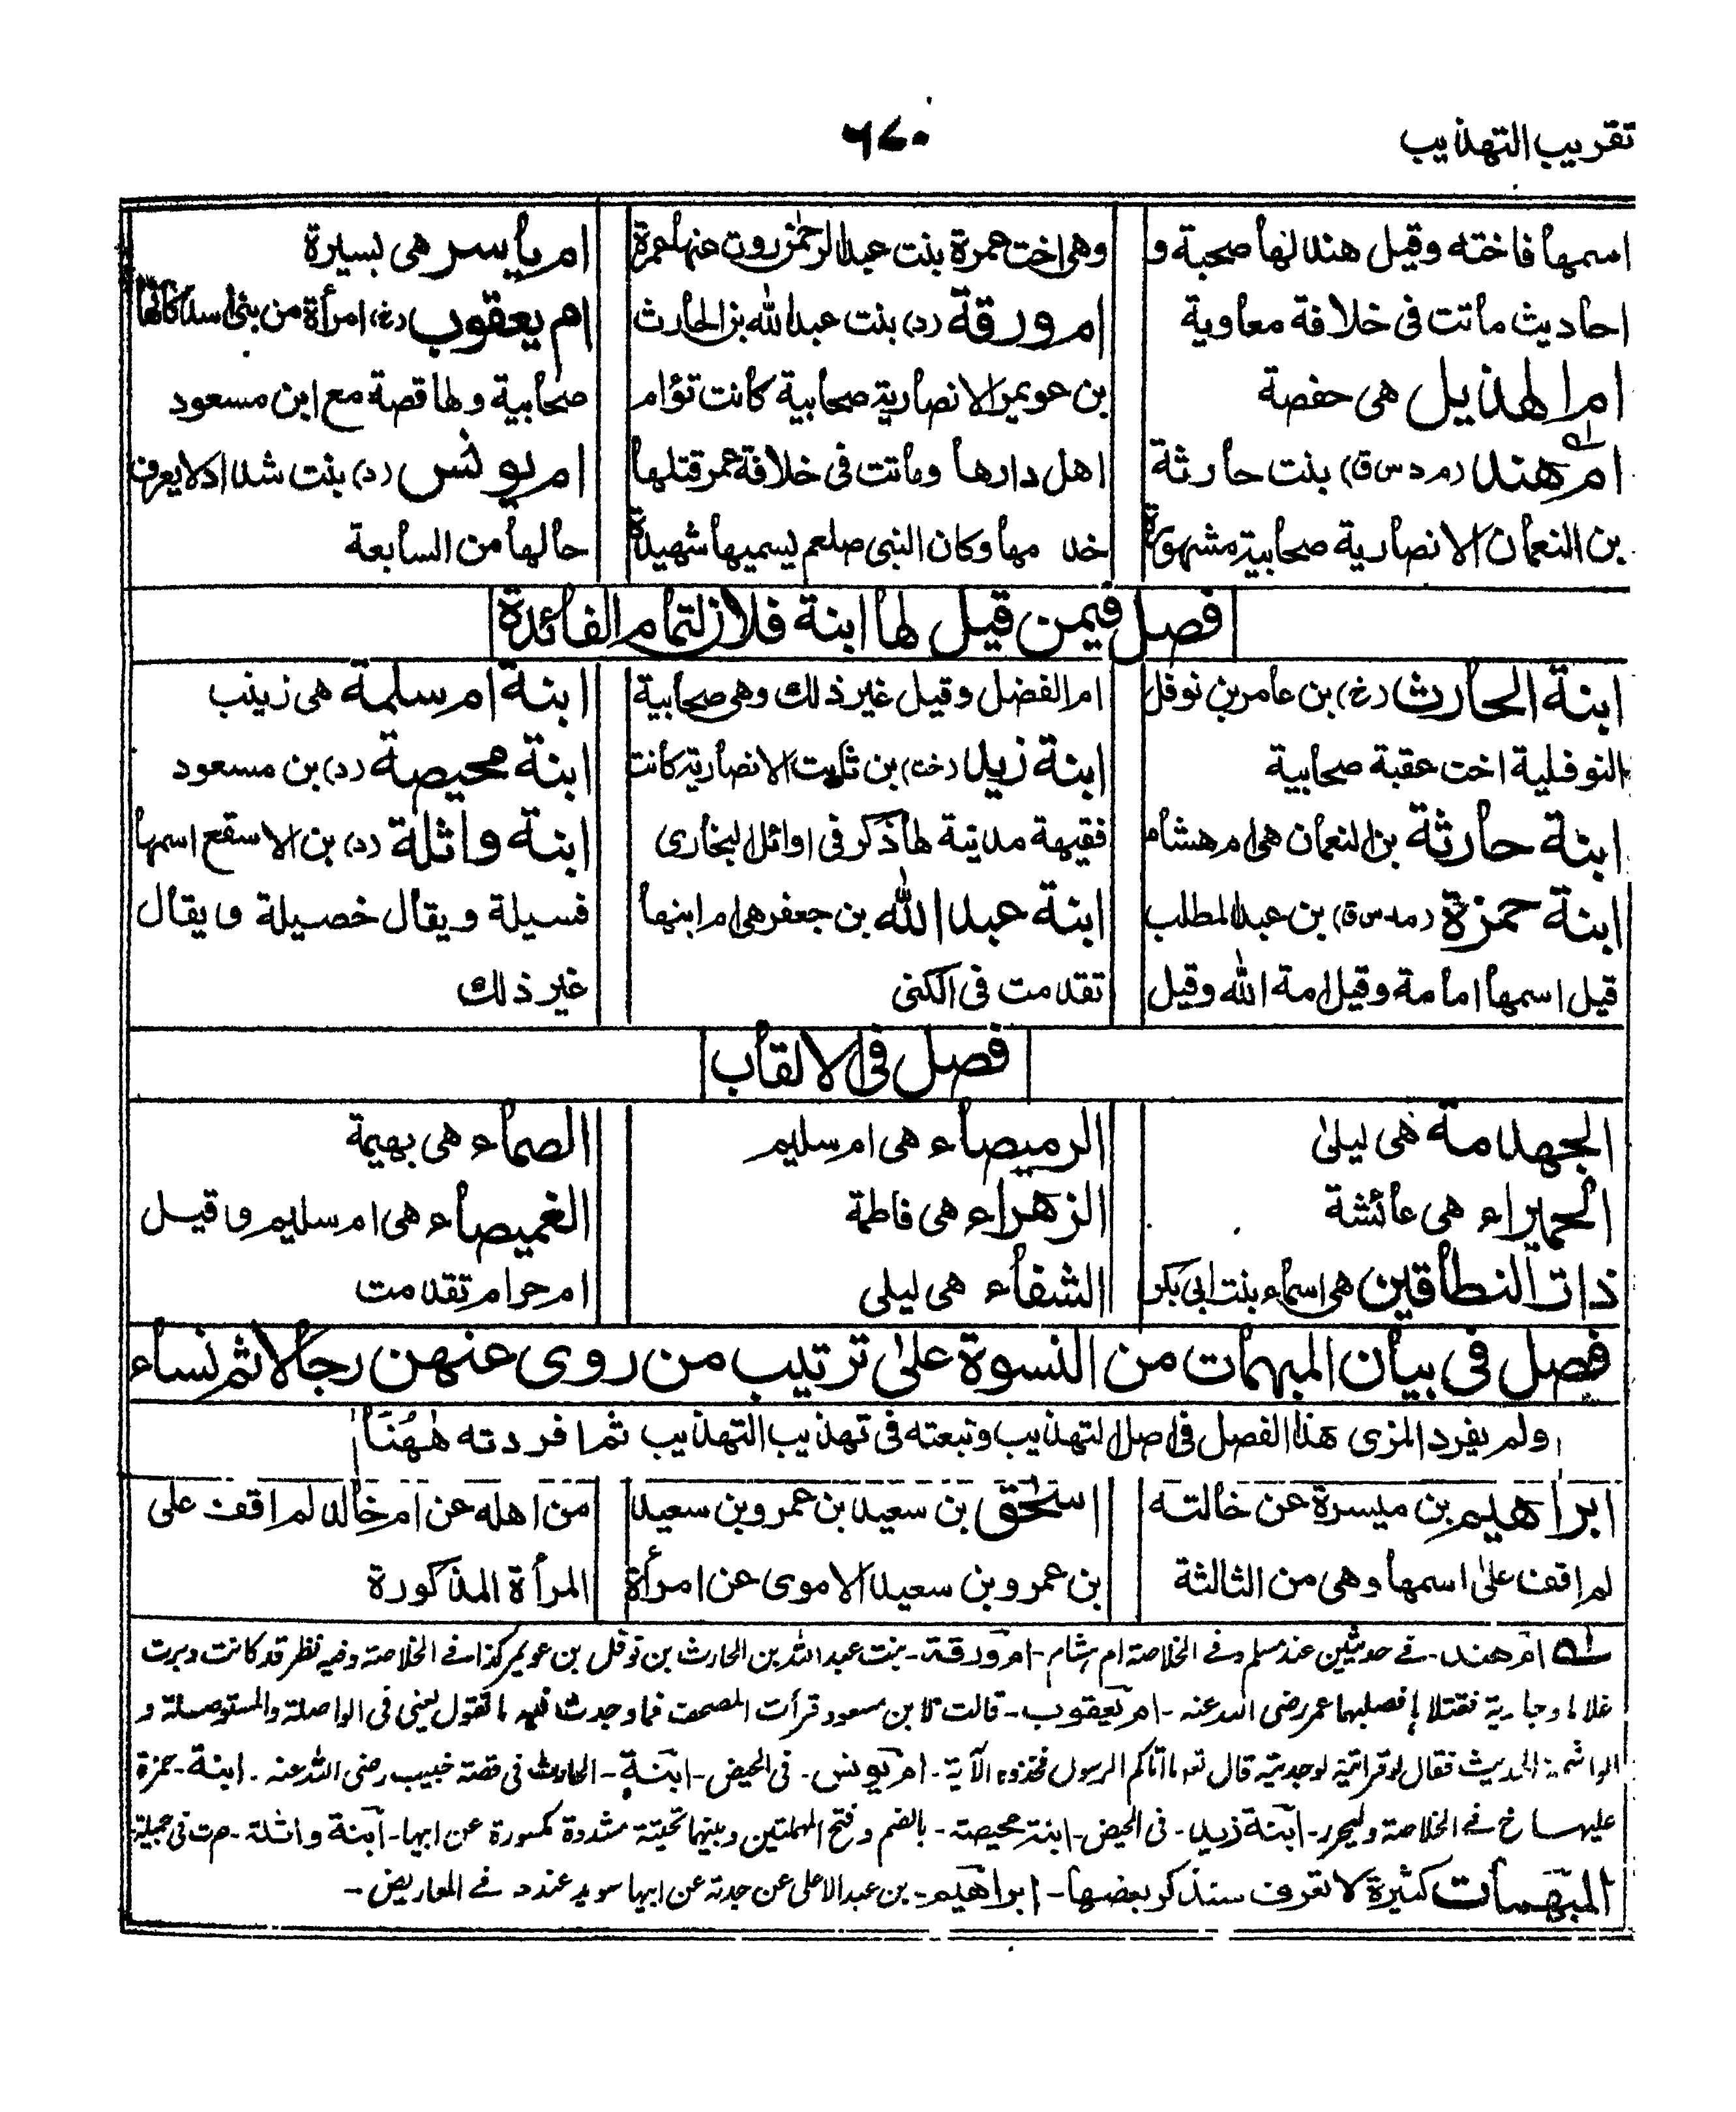 تقريب التهذيب
٦٤٠
اسمها فاخته وقيل هند لها صحبة و
احاديث ماتت فى خلافة معاوية
ام الهذيل هى حفصة
ام هند (م د س ق) بنت حارثة
بن النعمان الانصارية صحابية مشهورة
وهى اخت عمرة بنت عبد الرحمٰن روت عنها عمرة
ام ورقة (د) بنت عبد الله بن الحارث
بن عويمر الانصارية صحابية كانت تؤام
اهل دارها وماتت فى خلافة عمر قتلها
خدمها وكان النبى صلعم يسميها شهيدة
ام ياسر هى بسيرة
ام يعقوب (خ) امرأة من بنى اسد كانها
صحابية ولها قصة مع ابن مسعود
ام يونس (د) بنت شداد لا يعرف
حالها من السابعة
فصل فيمن قيل لها ابنة فلان لتمام الفائدة
ابنة الحارث (خ) بن عامر بن نوفل
النوفلية اخت عقبة صحابية
ابنة حارثة بن النعمان هى ام هشام
ابنة حمزة (م د س ق) بن عبد المطلب
قيل اسمها امامة وقيل امة الله وقيل
ام الفضل وقيل غير ذلك وهى صحابية
ابنة زيد (خت) بن ثابت الانصارية كانت
فقيهة مدنية لها ذكر فى اوائل البخارى
ابنة عبد الله بن جعفر هى ام ابنها
تقدمت فى الكنى
ابنة ام سلمة هى زينب
ابنة محيصة (د) بن مسعود
ابنة واثلة (د) بن الاسقع اسمها
فسيلة ويقال خصيلة ويقال
غير ذلك
فصل فى الالقاب
الجهدمة هى ليلىٰ
الحميراء هى عائشة
ذات النطاقين هى اسماء بنت ابى بكر
الرميصاء هى ام سليم
الزهراء هى فاطمة
الشفاء هى ليلى
الصماء هى بهيمة
الغميصاء هى ام سليم وقيل
ام حرام تقدمت
فصل فى بيان المبهمات من النسوة علىٰ ترتيب من روى عنهن رجالا ثم نساء
ولم يفرد المزى هذا الفصل فى اصل التهذيب وتبعته فى تهذيب التهذيب ثم افردته هٰهُنَا
ابراهيم بن ميسرة عن خالته
لم اقف علىٰ اسمها وهى من الثالثة
اسحٰق بن سعيد بن عمرو بن سعيد
بن عمرو بن سعيد الاموى عن امرأة
من اهله عن ام خالد لم اقف على
المرأة المذكورة
له ام هند- فے حديثين عند مسلم وفے الخلاصة ام ہشام- ام ورقة- بنت عبد اللہ بن الحارث بن نوفل بن عويمر كذا فے الخلاصة وفيه نظر قد كانت دبرت
غلاما وجارية فقتلاها فصلبهما عمر رضى اللہ عنہ- ام يعقوب- قالت لابن مسعود قرأت المصحف فما وجدت فيه ما تقول يعنى فى الواصلة والمستوصلة و
الواشمة الحديث فقال لو قرأتيه لوجدتيه قال تعہ ما اٰتاكم الرسول فخذوه الآية- ام يونس- فى الحيض- ابنة- الحارث فى قصة خبيب رضى اللہ عنہ- ابنة- حمزة
عليهـا خ فے الخلاصة وليحرر- ابنة زيد- فى الحيض- ابنة محيصة- بالضم وفتح المهملتين وبينهما تحتية مشددة مكسورة عن ابيها- ابنة واثلة- مرت فى جميلة
المبهمات كثيرة لا تعرف سنذكر بعضها- ابراهيم- بن عبد الاعلى عن جدته عن ابيها سويد عند د فے المعاريض-